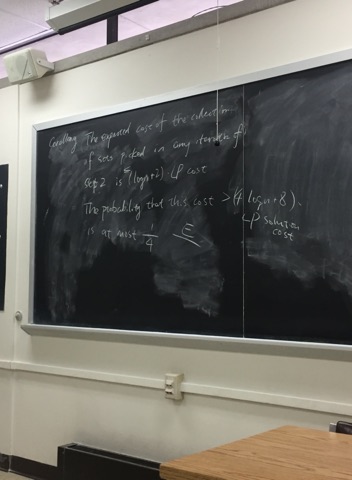 Corollary The expected cost of the collection
of sets picked in any iteration of
step 2 is (log n+2) LP cost
The probability that this cost > (4 log n + 8).
LP solution
cost
is at most 1/4 E